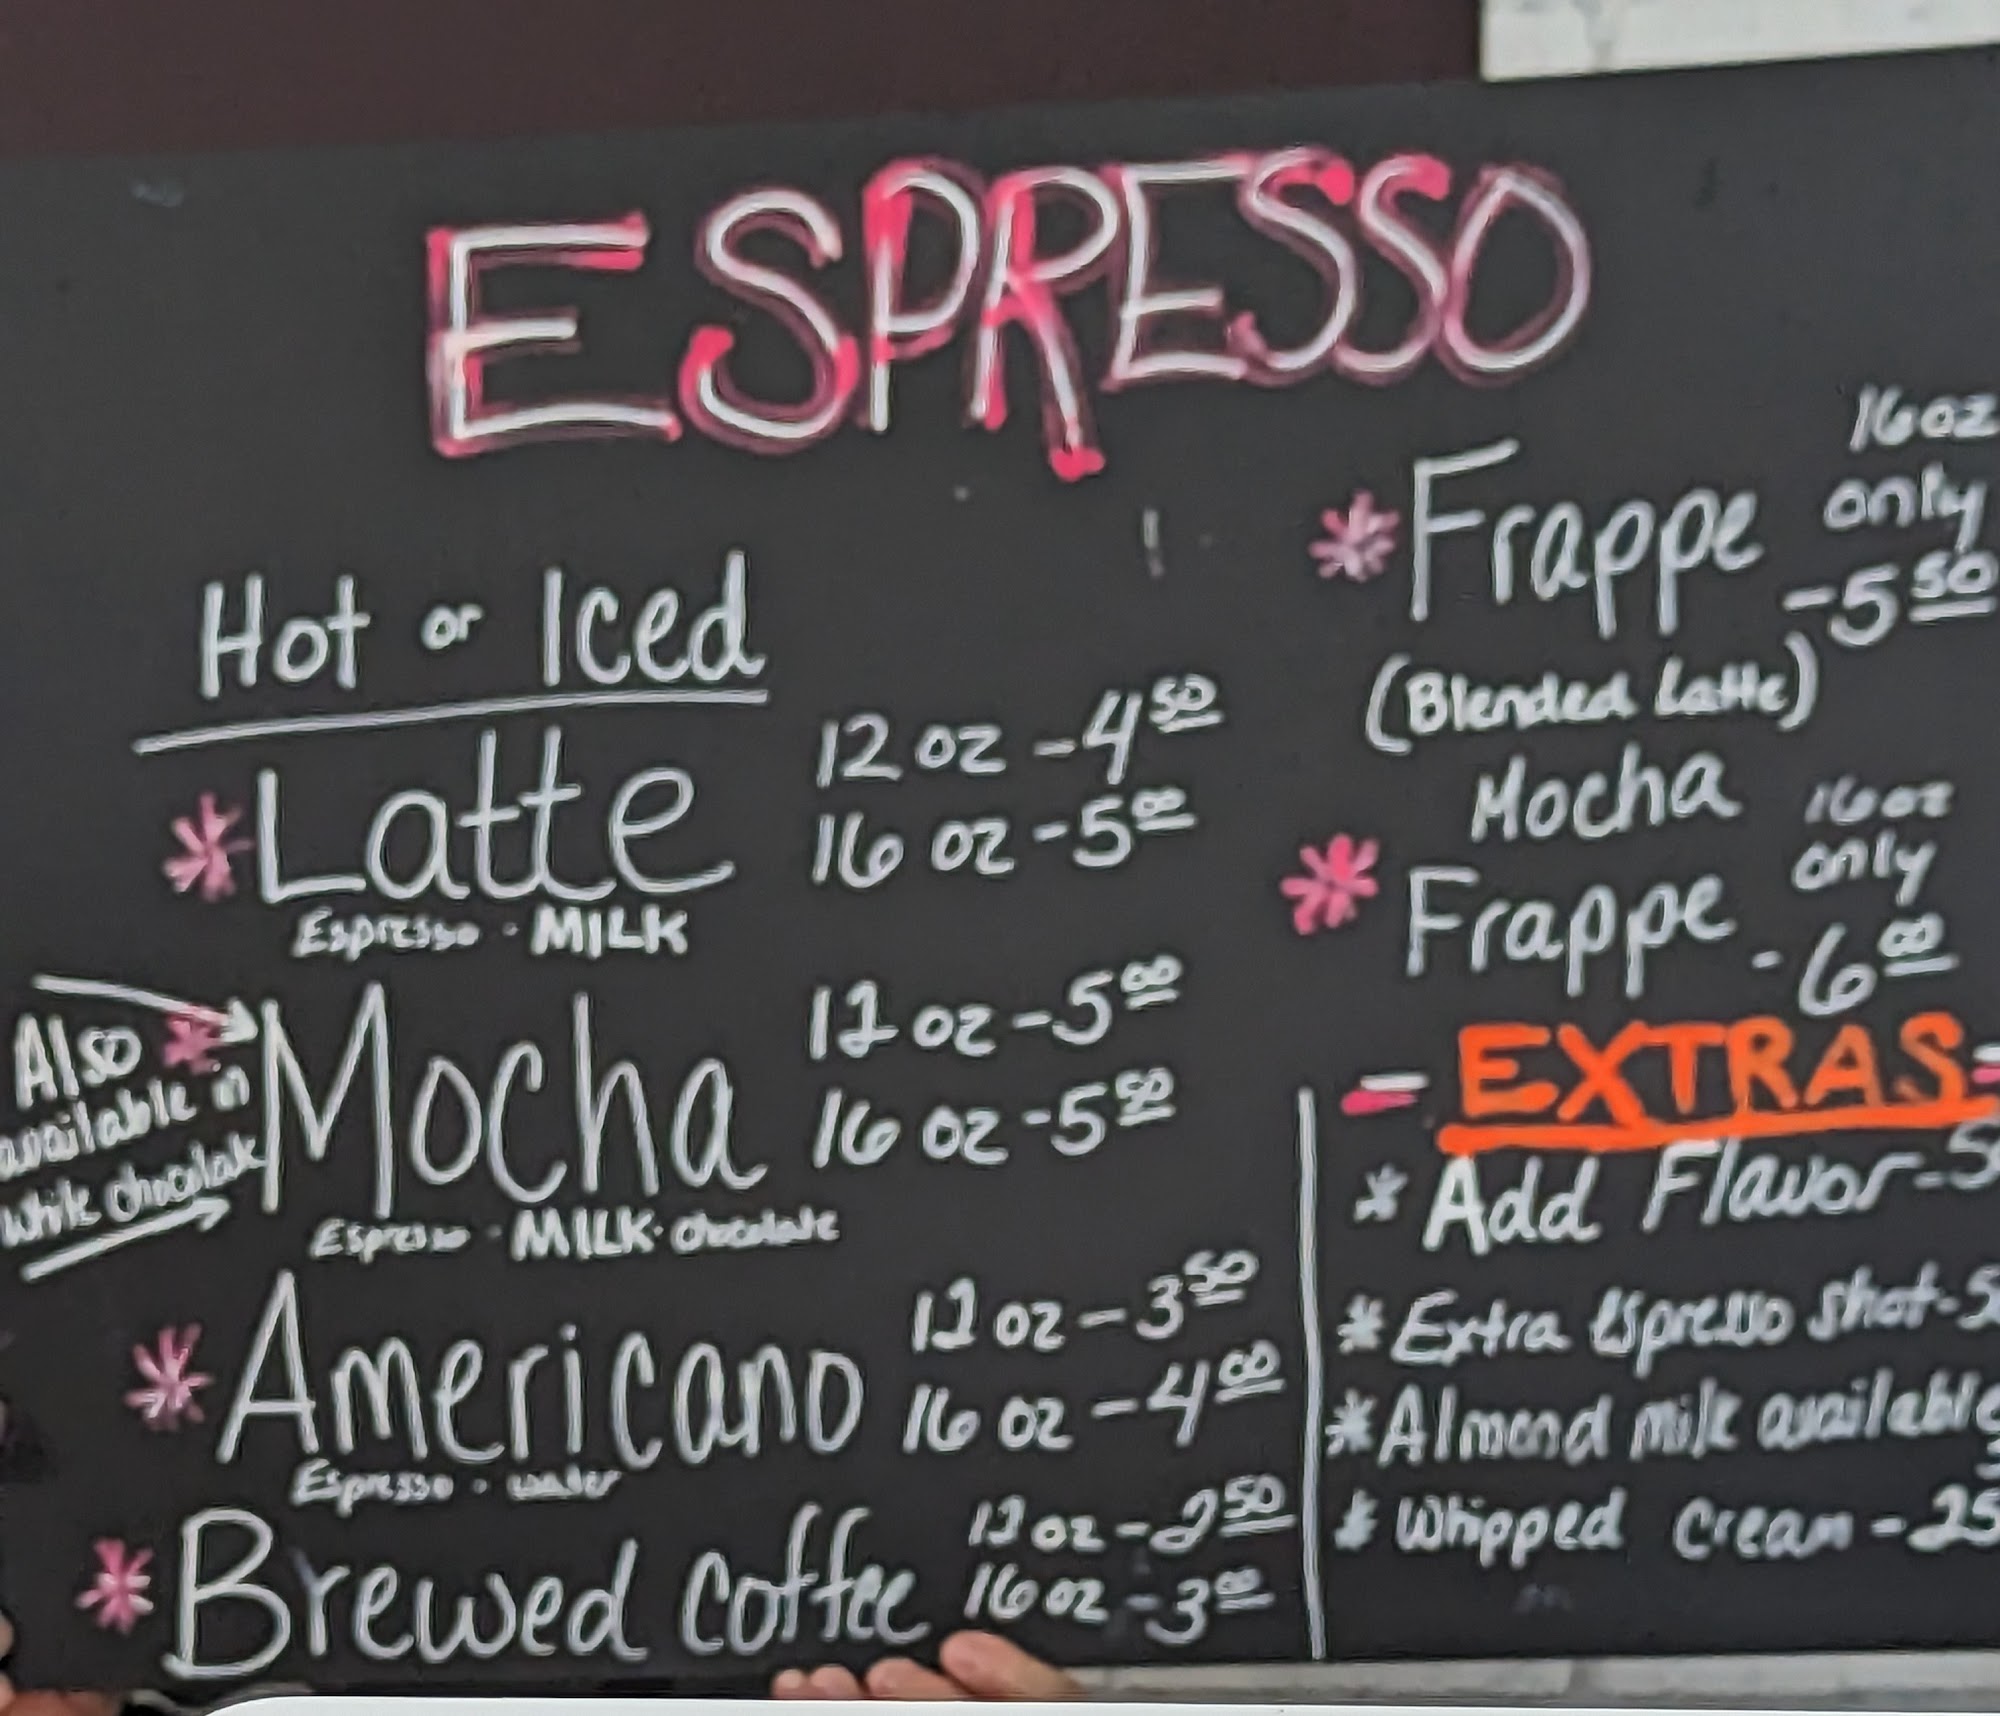 ESPRESSO
Hot or Iced
* Latte 12 oz - 4 50
16 oz - 5 00
Espresso · MILK
Also available in white chocolate
* Mocha 12 oz - 5 00
16 oz - 5 50
Espresso · MILK · chocolate
* Americano 12 oz - 3 50
16 oz - 4 00
Espresso · water
* Brewed coffee 12 oz - 2 50
16 oz - 3 00
* Frappe 16 oz only - 5 50
(Blended Latte)
* Mocha Frappe 16 oz only - 6 00
- EXTRAS -
* Add Flavor - 5
* Extra Espresso shot - 5
* Almond milk available
* Whipped Cream - 25